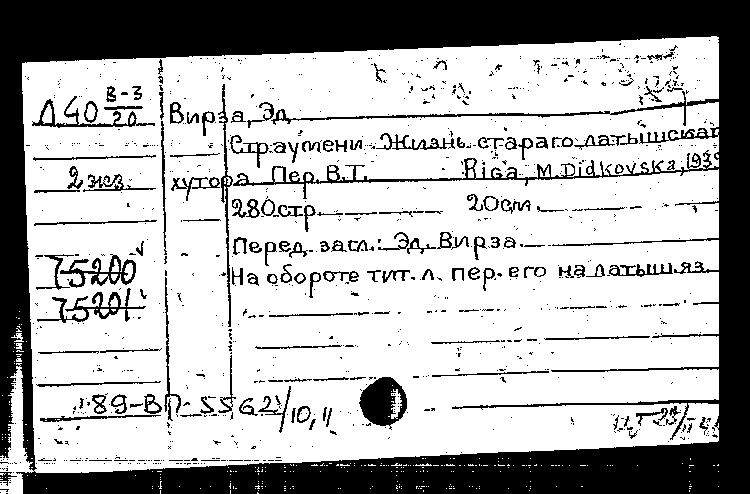 Л40 В-3/20
Вирза, Эд.
Страумени. Жизнь стараго латышскаг
2 экз. хутора. Пер. В.Т. Riga, M. Didkovska, 193
280стр. 20см.
Перед загл.: Эд. Вирза.
75200 На обороте тит. л. пер. его на латыш. яз.
75201
89-ВП-5562/10,11